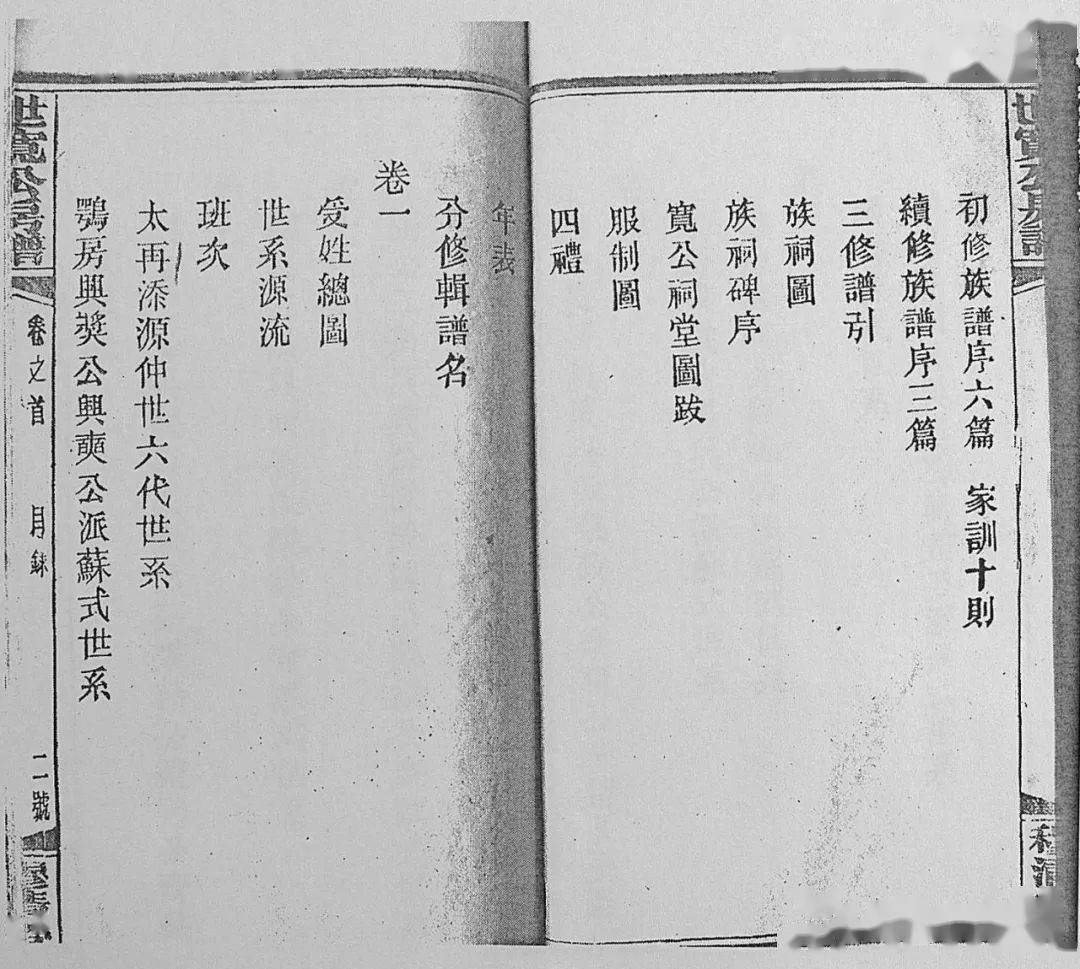 初修族譜序六篇　家訓十則
續修族譜序三篇
三修譜引
族祠圖
族祠碑序
寬公祠堂圖跋
服制圖
四禮
年表
分修輯譜名
卷一
受姓總圖
世系源流
班次
太再添源仲世六代世系
鶚房興獎公興奭公派蘇式世系
世寬公房譜
卷之首　目錄　二號